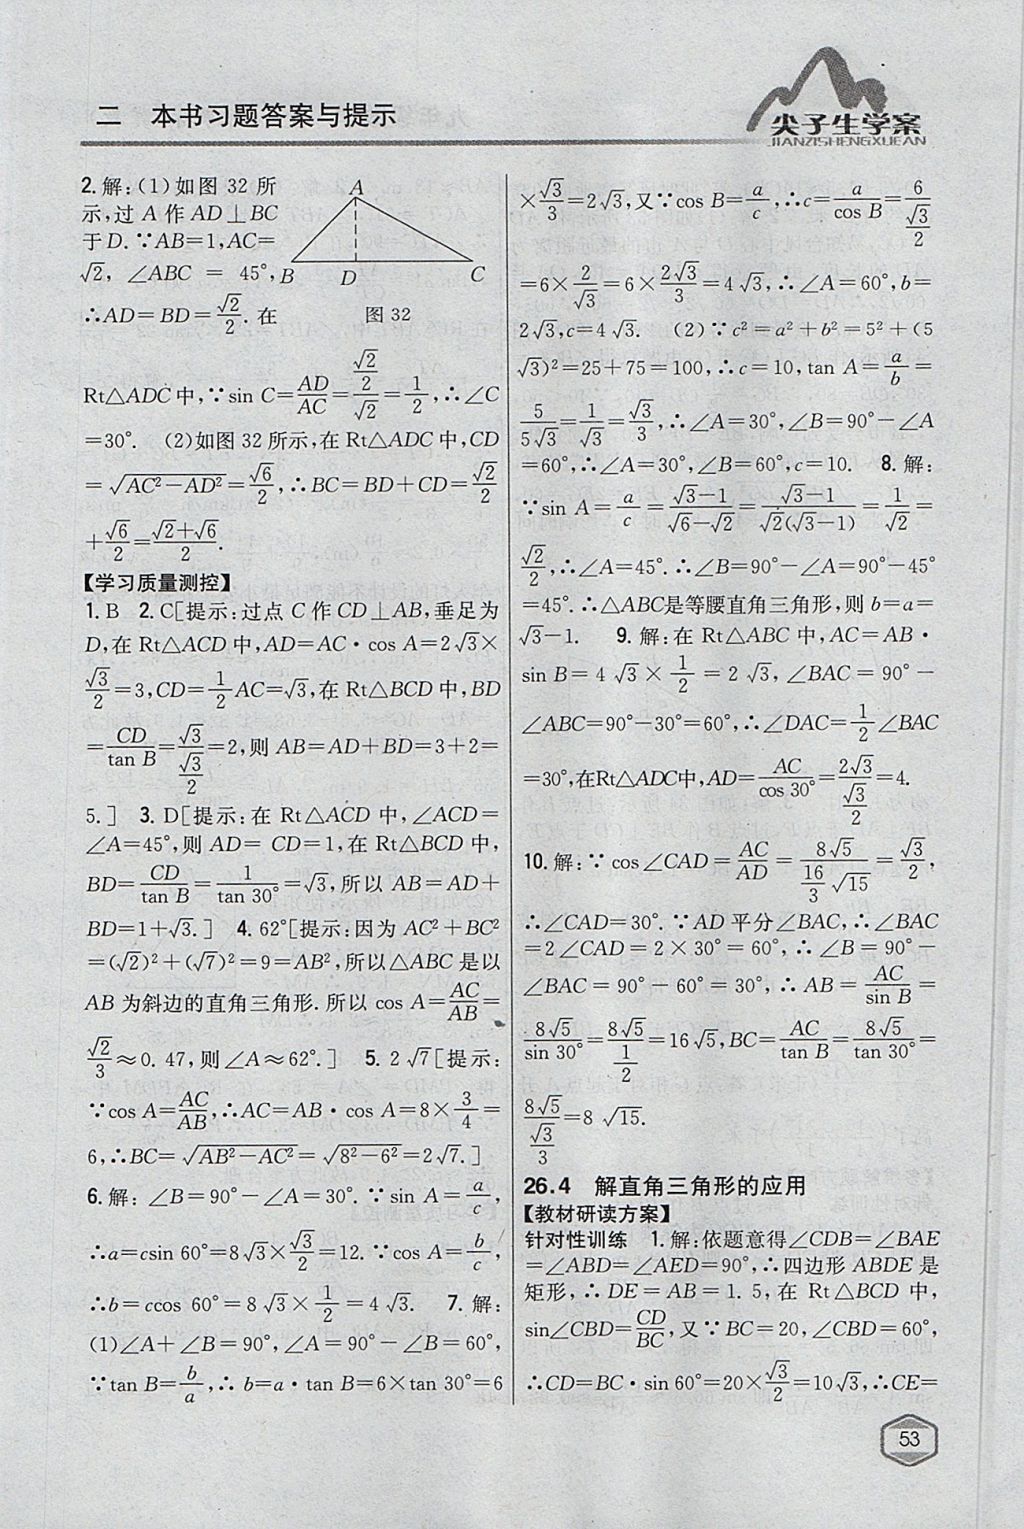 二 本书习题答案与提示
尖子生学案
JIANZISHENGXUEAN
2.解:(1)如图 32 所
示,过 A 作 AD⊥BC
于 D.∵AB=1,AC=
√2, ∠ABC = 45°,
∴AD=BD=√2/2. 在
A
B D C
图 32
Rt△ADC 中,∵sin C=AD/AC=(√2/2)/√2=1/2,∴∠C
=30°. (2)如图 32 所示,在 Rt△ADC 中,CD
=√(AC²-AD²)=√6/2,∴BC=BD+CD=√2/2
+√6/2=(√2+√6)/2.
【学习质量测控】
1.B 2.C[提示:过点 C 作 CD⊥AB,垂足为
D,在 Rt△ACD 中,AD=AC·cos A=2√3×
√3/2=3,CD=1/2AC=√3,在 Rt△BCD 中,BD
=CD/tan B=√3/(√3/2)=2,则 AB=AD+BD=3+2=
5.] 3.D[提示:在 Rt△ACD 中,∠ACD=
∠A=45°,则 AD= CD=1,在 Rt△BCD 中,
BD=CD/tan B=1/tan 30°=√3,所以 AB=AD+
BD=1+√3.] 4.62°[提示:因为 AC²+BC²
=(√2)²+(√7)²=9=AB²,所以△ABC 是以
AB 为斜边的直角三角形.所以 cos A=AC/AB=
√2/3≈0.47,则∠A≈62°.] 5.2√7[提示:
∵cos A=AC/AB,∴AC=AB·cos A=8×3/4=
6,∴BC=√(AB²-AC²)=√(8²-6²)=2√7.]
6.解:∠B=90°-∠A=30°. ∵sin A=a/c,
∴a=csin 60°=8√3×√3/2=12. ∵cos A=b/c,
∴b=ccos 60°=8√3×1/2=4√3. 7.解:
(1)∠A+∠B=90°,∠A=90°-∠B=60°,
∵tan B=b/a,∴b=a·tan B=6×tan 30°=6
×√3/3=2√3,又∵cos B=a/c,∴c=a/cos B=6/(√3/2)
=6×2/√3=6×2√3/3=4√3,∴∠A=60°,b=
2√3,c=4√3. (2)∵c²=a²+b²=5²+(5
√3)²=25+75=100,∴c=10,tan A=a/b=
5/5√3=1/√3=√3/3,∴∠A=30°,∠B=90°-∠A
=60°,∴∠A=30°,∠B=60°,c=10. 8.解:
∵sin A=a/c=(√3-1)/(√6-√2)=(√3-1)/(√2(√3-1))=1/√2=
√2/2,∴∠A=45°.∴∠B=90°-∠A=90°-45°
=45°.∴△ABC是等腰直角三角形,则 b=a=
√3-1. 9.解:在 Rt△ABC 中,AC=AB·
sin B=4√3×1/2=2√3,∠BAC=90°-
∠ABC=90°-30°=60°,∴∠DAC=1/2∠BAC
=30°,在Rt△ADC中,AD=AC/cos 30°=2√3/(√3/2)=4.
10.解:∵cos∠CAD=AC/AD=8√5/(16/3 √15)=√3/2,
∴∠CAD=30°.∵AD 平分∠BAC,∴∠BAC
=2∠CAD=2×30°=60°,∴∠B=90°-
∠BAC=90°-60°=30°,∴AB=AC/sin B=
8√5/sin 30°=8√5/(1/2)=16√5,BC=AC/tan B=8√5/tan 30°=
8√5/(√3/3)=8√15.
26.4 解直角三角形的应用
【教材研读方案】
针对性训练 1.解:依题意得∠CDB=∠BAE
=∠ABD=∠AED=90°,∴四边形 ABDE 是
矩形,∴DE=AB=1.5,在 Rt△BCD 中,
sin∠CBD=CD/BC,又∵BC=20,∠CBD=60°,
∴CD=BC·sin 60°=20×√3/2=10√3,∴CE=
53